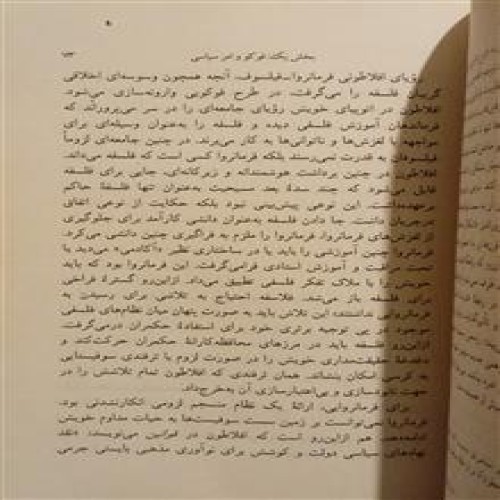 بخش یک: فوکو و امر سیاسی
رؤیای افلاطونی فرمانروا-فیلسوف، آنچه همچون وسوسه‌ای اخلاقی
گریبان فلسفه را می‌گرفت، در طرح فوکویی وارونه‌سازی می‌شود.
افلاطون در اتوپیای خویش رؤیای جامعه‌ای را در سر می‌پروراند که
فرماندهان آموزش فلسفی دیده و فلسفه را به‌عنوان وسیله‌ای برای
مواجهه با لغزش‌ها و ناتوانی‌ها به کار می‌برند. در چنین جامعه‌ای لزوماً
فیلسوفان به قدرت نمی‌رسند بلکه فرمانروا کسی است که فلسفه می‌داند.
افلاطون در چنین برداشت هوشمندانه و زیرکانه‌ای، جایی برای فلسفه
قایل می‌شود که چند سدهٔ بعد مسیحیت به‌عنوان تنها فلسفهٔ حاکم
برعهده این نوعی پیش‌بینی نبود بلکه حکایت از نوعی اتفاق
در جریان داشت. جا دادن فلسفه به‌عنوان دانشی کارآمد برای جلوگیری
از لغزش‌های فرمانروا، فرمانروا را ملزم به فراگیری چنین دانشی می‌کرد.
فرمانروا چنین آموزشی را باید یا در ساختاری نظیر «آکادمی» می‌دید یا
تحت مراقبت و آموزش استادی قرامی‌گرفت. این فرمانروا بود که باید
خویش را با ملاک تفکر فلسفی تطبیق می‌داد. ازاین‌رو گسترهٔ فراخی
برای فلسفه باز می‌شد. فلاسفه احتیاج به تلاشی برای رسیدن به
فرمانروایی نداشتند؛ این تلاش باید به صورت پنهان میان نظام‌های فلسفی
موجود در بی توجیه برتری خود برای استفادهٔ حکمران درمی‌گرفت.
ازاین‌رو فلسفه باید در مرزهای محافظه‌کارانهٔ حکمران حرکت‌کند و
دغدغهٔ حقیقت‌مداری خویش را در صورت لزوم با ترفندی سوفیستایی
به کرسی امکان بنشاند. همان ترفندی که افلاطون تمام تلاشش را در
جهت نابودسازی و بی‌اعتبارسازی آن به‌خرج‌داد.
برای فرمانروایی، ارائهٔ یک نظام منسجم لزومی انکارنشدنی بود.
فرمانروا نمی‌توانست بر زمین سست سوفیست‌ها به حیات مداوم خویش
ادامه‌دهد. هم ازاین‌رو است که افلاطون در قوانین می‌نویسد: «نقد
نهادهای سیاسی دولت و کوشش برای نوآوری مذهبی بایستی جرمی